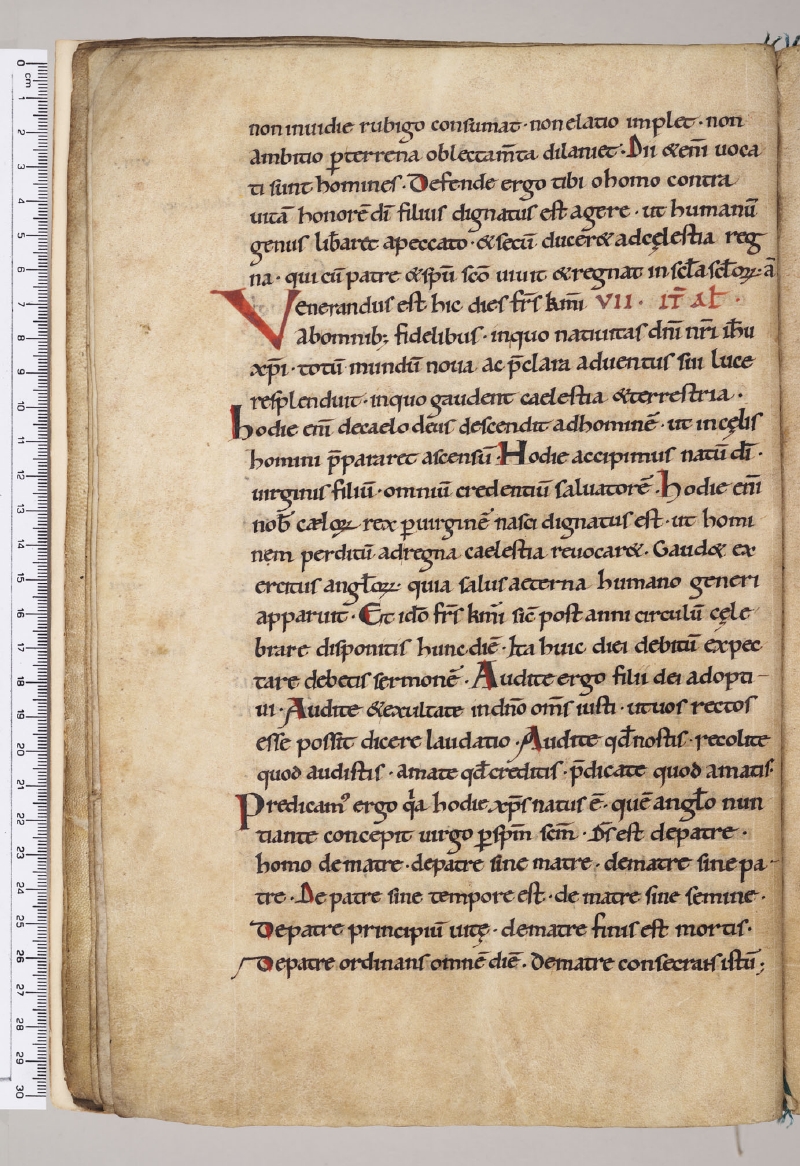 non inuidie rubigo consumat · non elatio implet · non
ambitio ꝑterrena oblectam̅ta dilaniet · Dii &eni̅ uoca
ti sunt homines · Defende ergo tibi o homo contra
uita̅ honore̅ di̅ filius dignatus est agere · ut humanu̅
genus lib̅aret apeccato · &secu̅ ducer& adcęlestia reg
na · qui cu̅ patre &sp̅u sc̅o uiuit &regnat in sc̅la sc̅loꝝ · a̅
Venerandus est hic dies fr̅s km̅i VII · IT̅ AL̅ ·
abomnib; fidelibus · inquo natiuitas dn̅i nr̅i ih̅u
xp̅i · totu̅ mundu̅ noua ac p̅clara aduentus sui luce
resplenduit · inquo gaudent caelestia &terrestria ·
hodie eni̅ decaelo deus descendit adhomine̅ · ut incęlis
homini p̅pararet ascensu̅ · Hodie accipimus natu̅ di̅ ·
uirginis filiu̅ · omniu̅ credentiu̅ saluatore̅ · hodie eni̅
nob̅ cæloꝝ rex ꝑuirgine̅ nasci dignatus est · ut homi
nem perditu̅ adregna caelestia reuocar& · Gaud& ex
ercitus angl̅oꝝ · quia salus aeterna humano generi
apparuit · Et ido̅ fr̅s km̅i sic̅ post anni circulu̅ cęle
brare disponitis hunc die̅ · Ita huic diei debitu̅ expec
tare debetis sermone̅ · Audite ergo filii dei adopti-
ui · Audite &exultate indn̅o om̅s iusti · ut uos rectos
esse possit dicere laudatio · Audite qd̅ nostis · recolite
quod audistis · amate qd̅ creditis · p̅dicate quod amatis ·
Predicam⁹ ergo q̅a hodie xp̅s natus e̅ · que̅ angl̅o nun
tiante concepit uirgo ꝑ sp̅m sc̅m · Ds̅ est depatre ·
homo dematre · depatre sine matre · dematre sine pa
tre · De patre sine tempore est · de matre sine semine ·
Depatre principiu̅ uitę · dematre finis est mortis ·
Depatre ordinans omne̅ die̅ · Dematre consecrans istu̅ ;